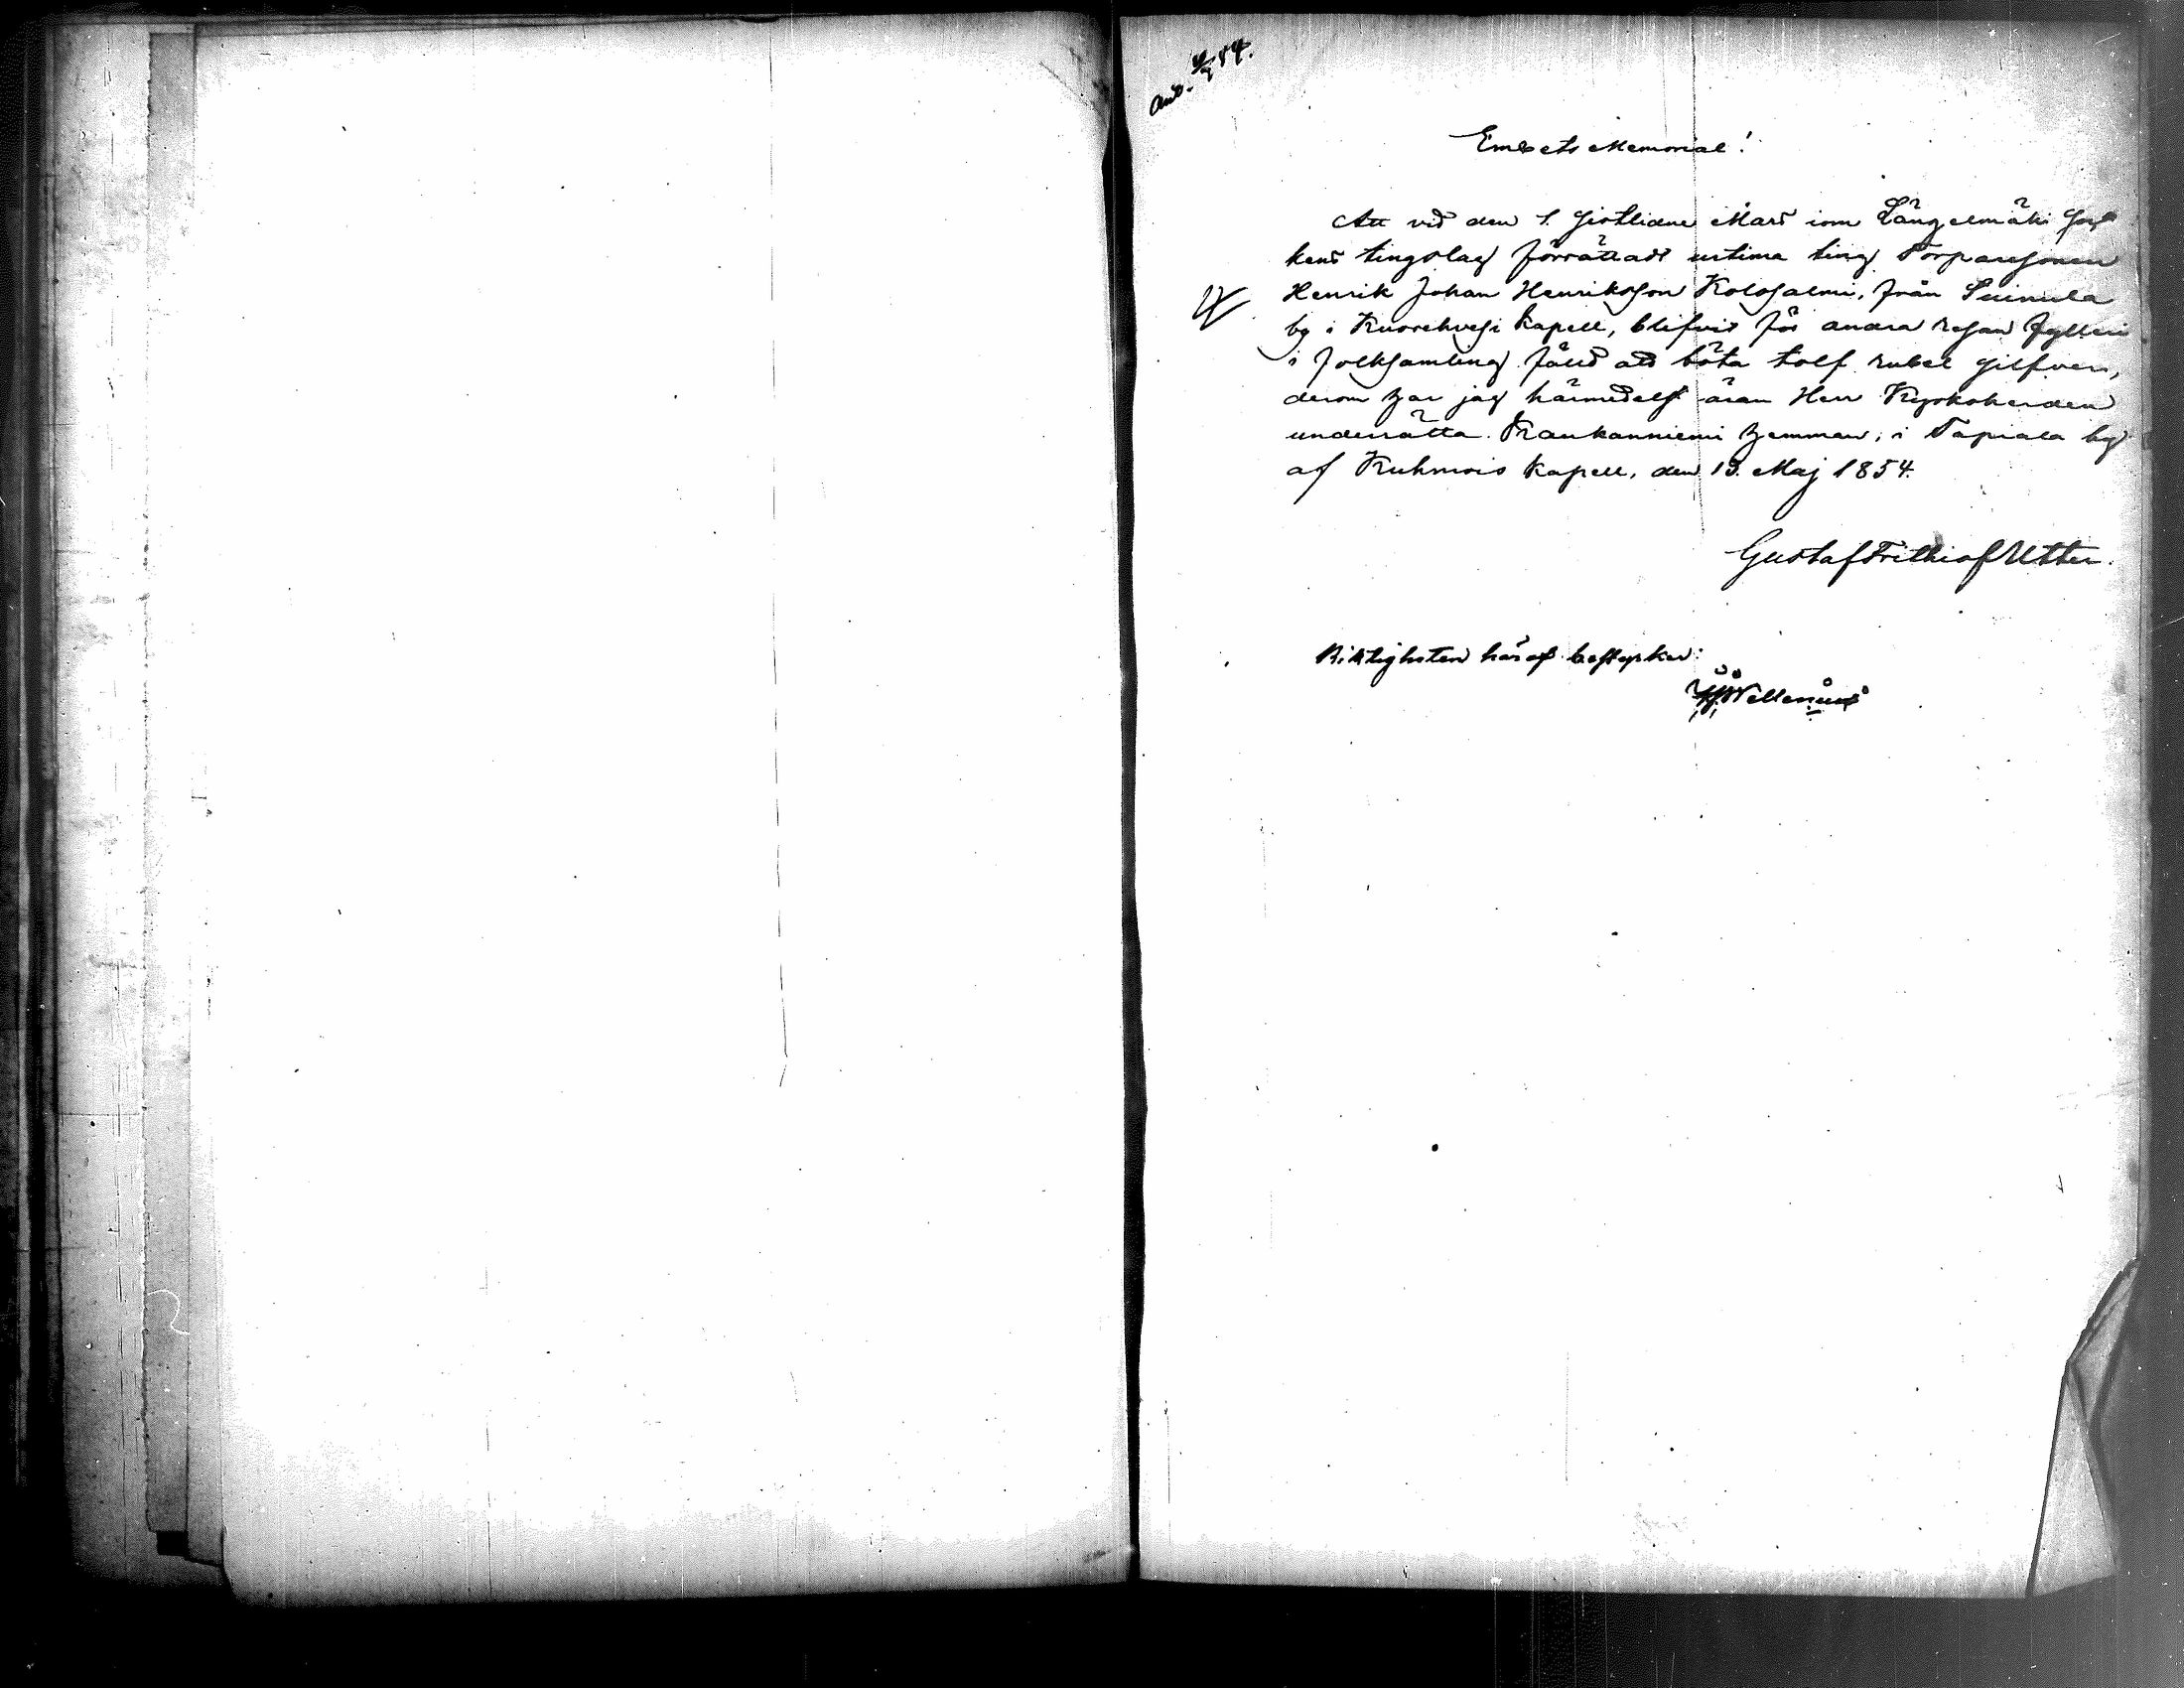 Embets Memorial!
Att vid den 1. sistlidne Mars inom Längelmäki Soc
kens tingslag förrättadt urtima ting Torparesonen
Henrik Johan Henriksson Kolosalmi, från Suinula
by i Kuorehvesi kapell, blifvit för andra resan fylleri
i folksamling fälld att böta tolf rubel silfver,
derom har jag härmedelst äran Herr Kyrkoherden
underrätta. Kaukanniemi hemman, i Tapiala by
af Kuhmois kapell, den 19. Maj 1854.
Gustaf Frithiof Utter.
Riktigheten häraf bestyrker:
Wellenius